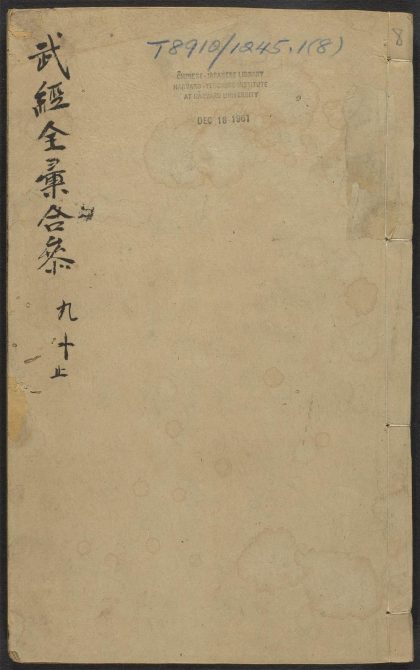 T8910/1245.1(8)
8
CHINESE-JAPANESE LIBRARY
HARVARD-YENCHING INSTITUTE
AT HARVARD UNIVERSITY
DEC 18 1961
武經全彙合參
九十止